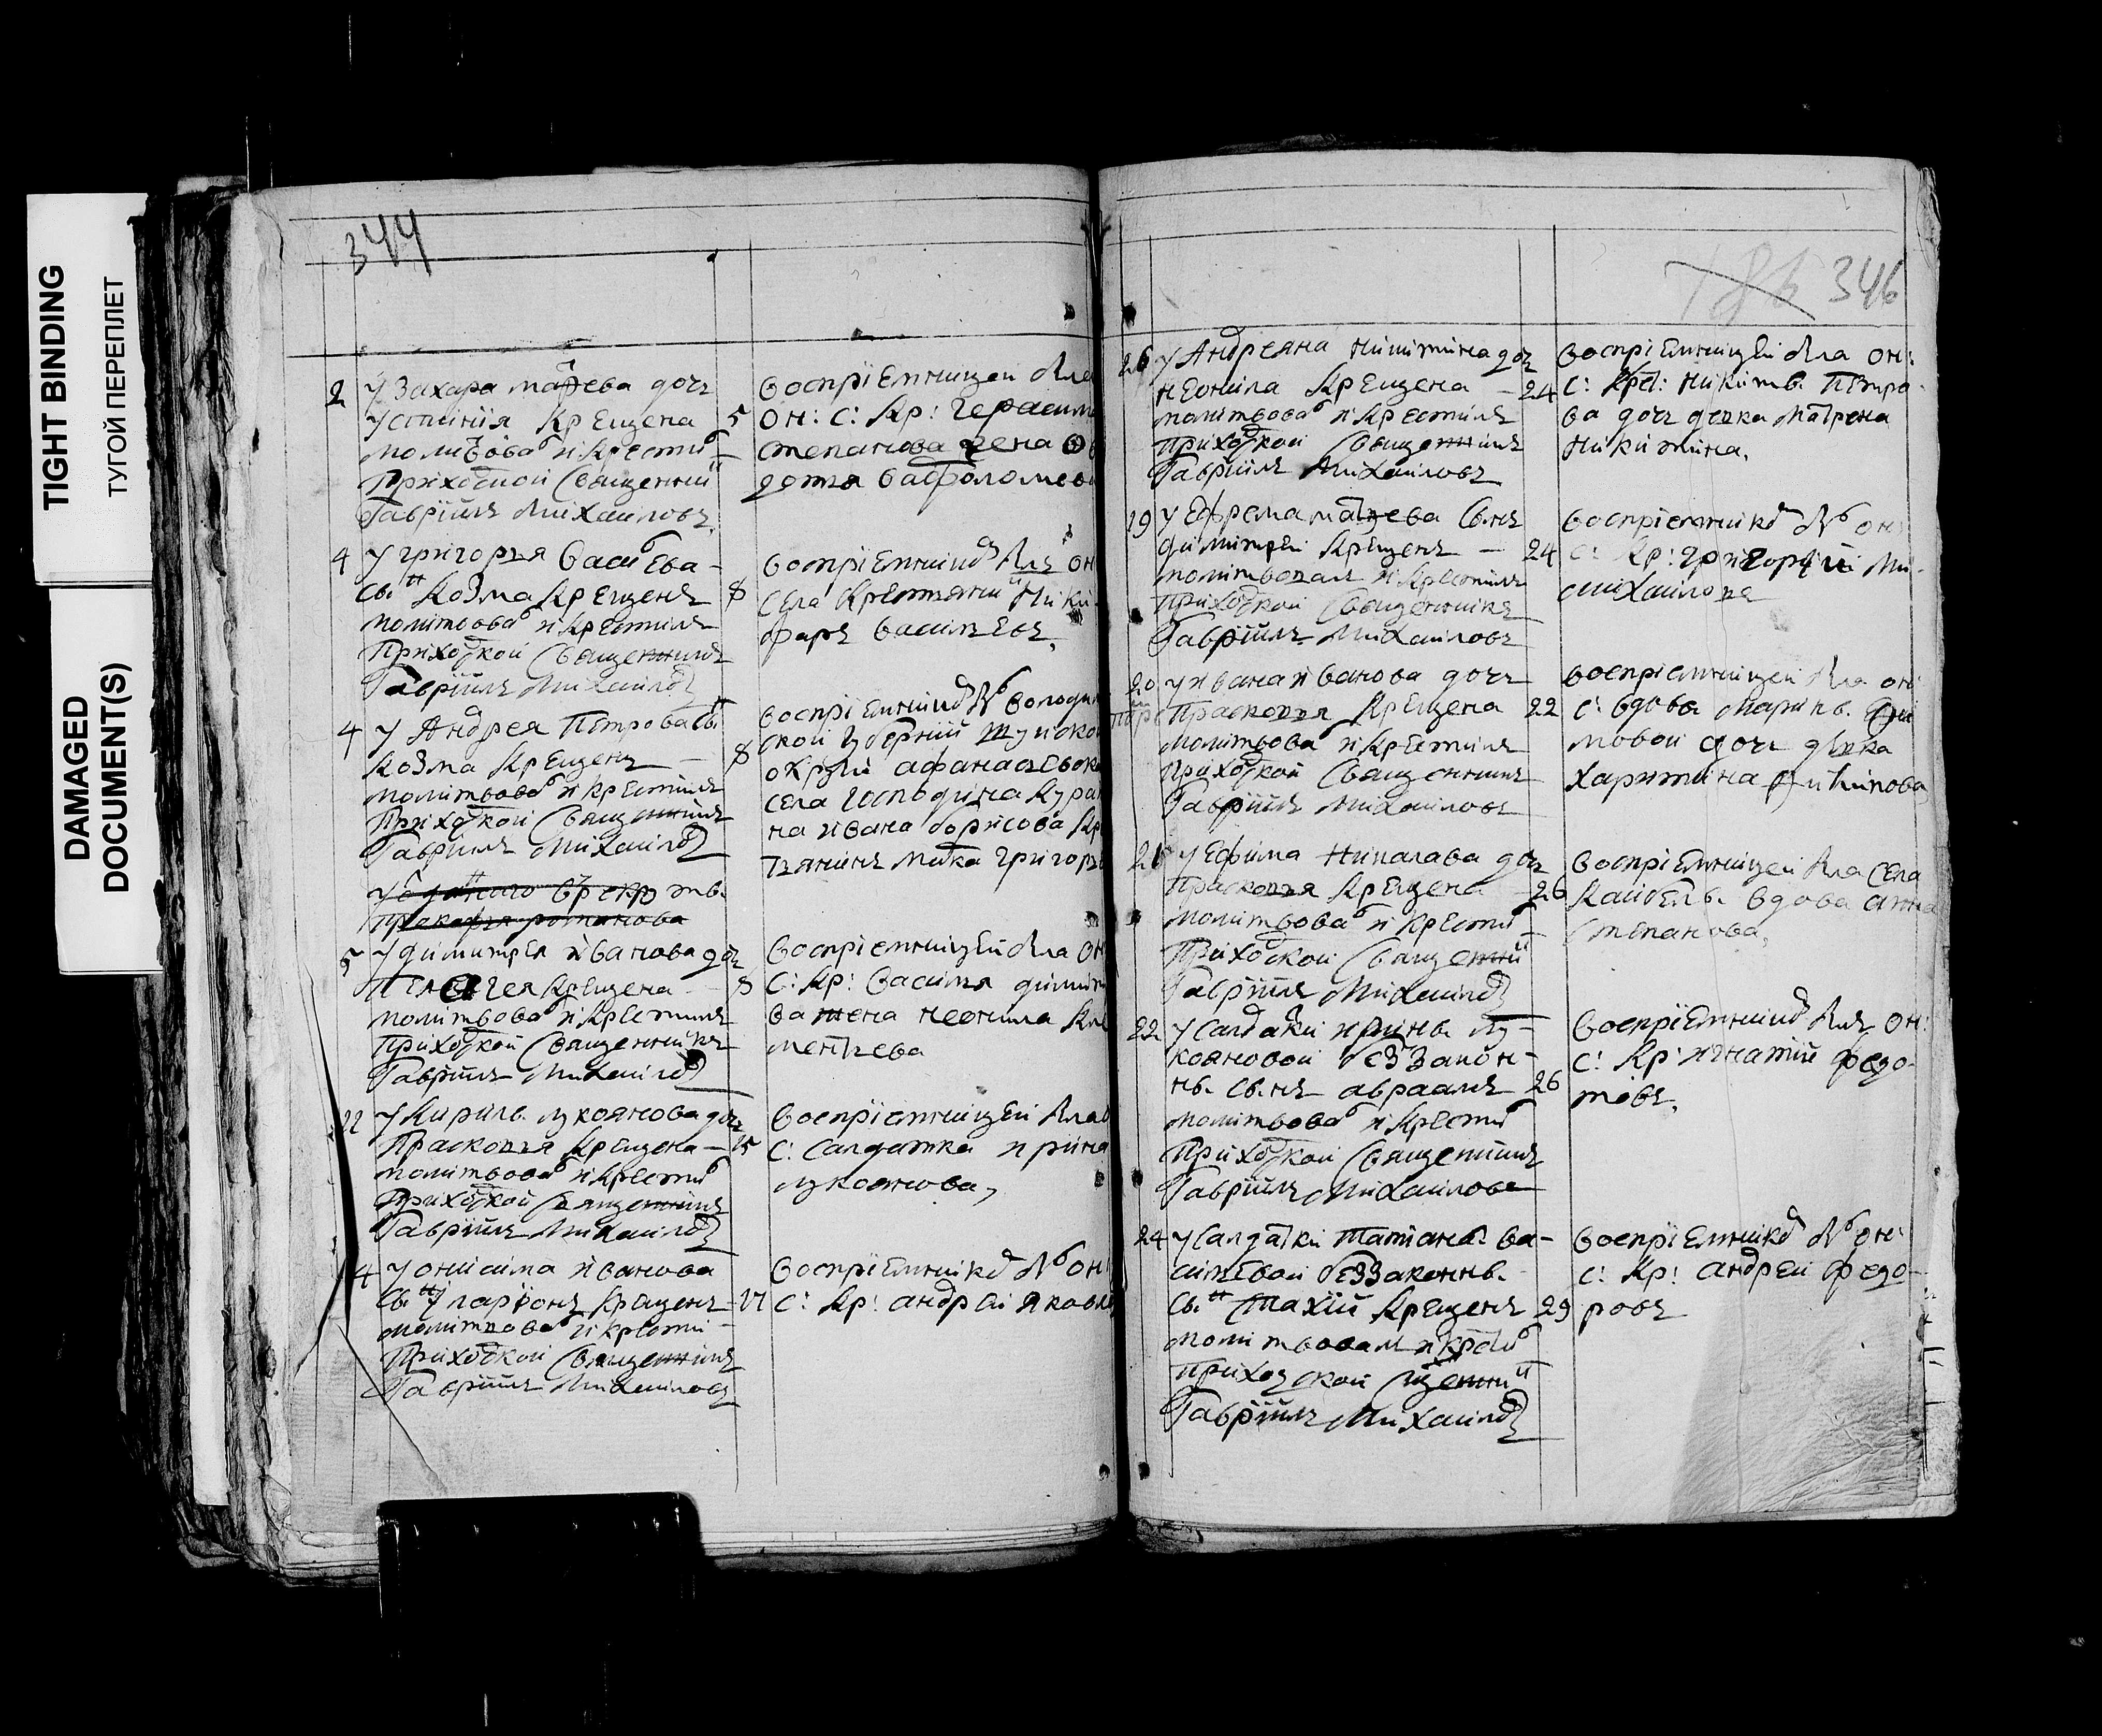 TIGHT BINDING
ТУГОЙ ПЕРЕПЛЕТ
DAMAGED
DOCUMENT(S)
344
2
У Захара матѳева дочь
устинія Крещена
молитвовал и Крестил
Приходской Священник
Гавріилъ Михаиловъ
5
воспріемницей была
он: с: Кр: Герасима
степанова жена
дотья вафоломеев
4
У григорья Васильева
сынъ Козма Крещенъ
молитвовал и Крестилъ
Приходской Священникъ
Гавріилъ Михаилов
8
воспріемником былъ он
села Крестьянин Ники
фаръ васильевъ
4
У Андрея Петрова сынъ
Козма Крещенъ
молитвовал и Крестилъ
Приходской Священникъ
Гавріилъ Михаилов
8
воспріемником был
ской губерніи
округи афанасьевск
села господина Кура
на ивана борисова Кр
тьянинъ григорь
прокофья романова
5
У димитрея иванова дочь
Пелагея Крещена
молитвовал и Крестилъ
Приходской Священникъ
Гавріилъ Михаилов
8
воспріемницей была он
с: Кр: василья димит
ва жена неонила Кле
ментьева
У Кирилы лукоянова дочь
Прасковья Крещена
молитвовал и Крестил
Приходской Священникъ
Гавріилъ Михаилов
15
воспріемницей была
с: салдатка ирина
лукоянова,
У онисима иванова
сынъ ларіонъ Крещенъ
молитвовал и Крести
Приходской Священникъ
Гавріилъ Михаиловъ
17
воспріемником был он
с: Кр: андрей яковл
346
У Андреяна никитина дочь
неонила Крещена
молитвовал и Крестилъ
Приходской Священникъ
Гавріилъ Михаиловъ
24
воспріемницей была он:
с: Кре: никиты Петро
ва дочь девка матрена
никитина.
19
У Ефрема матвева сынъ
димитрей Крещенъ
молитвовал и Крестилъ
Приходской Священникъ
Гавріилъ Михаиловъ
24
воспріемником был он
с: Кр: григорий
михаилова
20
У ивана иванова дочь
Прасковья Крещена
молитвовал и Крестилъ
Приходской Священникъ
Гавріилъ Михаиловъ
22
воспріемницей была он
с: вдовы марины
мовой дочь девка
харитина
У Ефима николаева дочь
Прасковья Крещена
молитвовал и Крестил
Приходской Священник
Гавріилъ Михаилов
26
воспріемницей была села
вдова анна
степанова,
22
У салдатки ирины лу-
кояновой беззакон-
ны сынъ авраамъ
молитвовал и Крестил
Приходской Священникъ
Гавріилъ Михаилова
26
воспріемником былъ он:
с: Кр: игнатий федо-
товъ.
24
У салдатки татіаны ва-
сильевой беззаконны
сынъ Крещенъ
молитвовал и Крестил
Приходской Священник
Гавріилъ Михаилов
29
воспріемником был он:
с: Кр: андрей федо-
ровъ